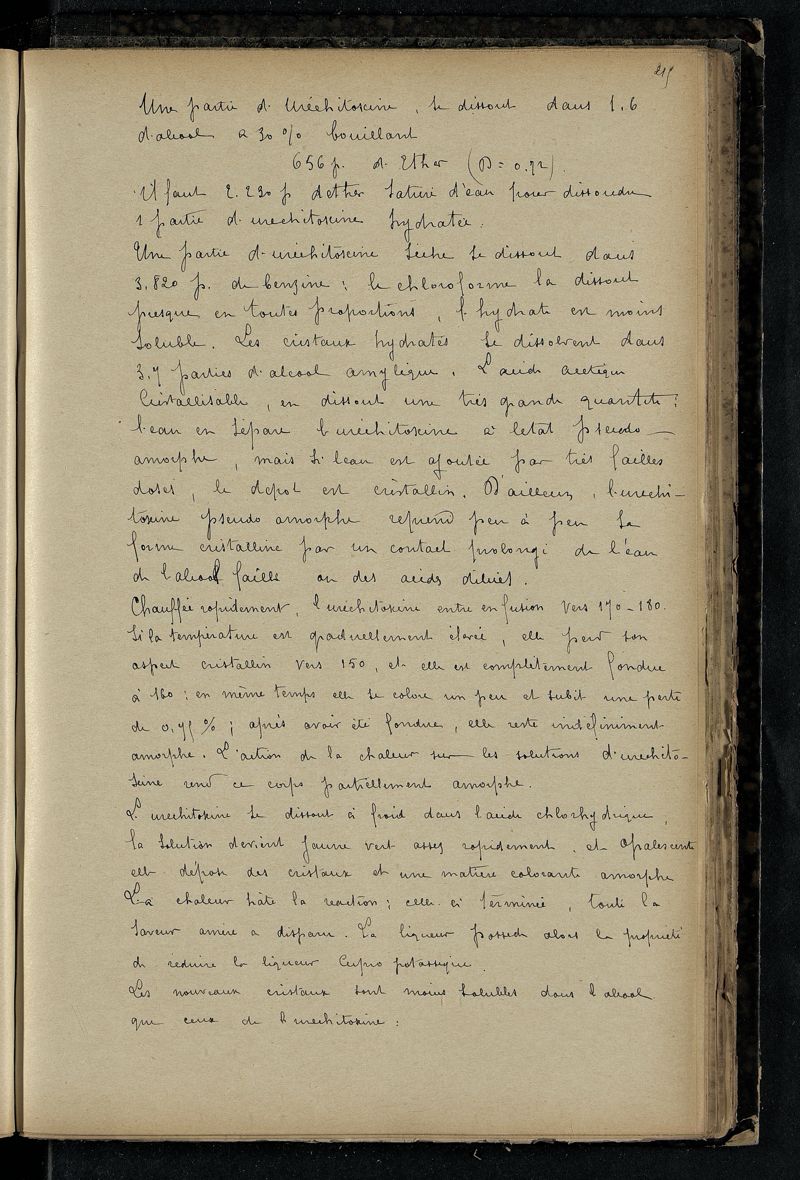 219
Une partie d'Uréchitoxine, se dissout dans 1.6
d'alcool a 30 % bouillant
656 p. d'Ether (D = 0.72).
Il faut 2.230 p d'ether saturé d'eau pour dissoudre
1 partie d'urechitoxine hydratée.
Une partie d'uréchitoxine séche se dissout dans
3.820 p. de benzine ; le chloroforme la dissout
presque en toutes proportions, l'hydrate est moins
soluble. Les cristaux hydratés se dissolvent dans
3.7 parties d'alcool amylique. L'acide acétique
Cristallisable, en dissout une très grande quantité ;
l'eau en sépare l'uréchitoxine à l'etat pseudo
amorphe, mais si l'eau est ajoutée par très faibles
doses, le dépot est cristallin. D'ailleurs, l'uréchi-
toxine pseudo amorphe reprend peu à peu sa
forme cristalline par un contact prolongé de l'éau
de l'alcool faible ou des acides dilués.
Chauffée rapidement, l'uréchitoxine entre en fusion vers 170-180.
Si la température est graduellement élevée, elle perd son
aspect cristallin vers 150, et elle est complètement fondue
à 160 ; en même temps elle se colore un peu et subit une perte
de 0,75 % ; après avoir été fondue, elle reste indéfiniment
amorphe. L'action de la chaleur sur les solutions d'urechito-
xine rend ce corps partiellement amorphe.
L'urechitoxine se dissout à froid dans l'acide chlorhydrique,
la solution devient jaune vert assez rapidement, et opalescente
elle dépose des cristaux et une matière colorante amorphe
La chaleur hâte la reaction ; celle ci terminée, toute la
saveur amère a disparu. La liqueur possede alors la propriété
de reduire la liqueur Cupro potassique.
Les nouveaux cristaux sont moins solubles dans l'alcool
que ceux de l'urechitoxine :